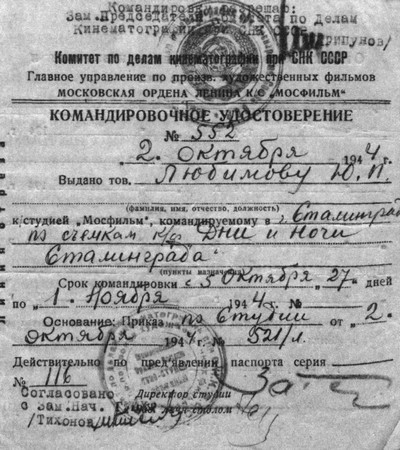 Командировку разрешаю:
Зам.Председателя Комитета по Делам
Кинематографии при СНК СССР
/Хрипунов/
Комитет по делам кинематографии при СНК СССР
Главное управление по произв. художественных фильмов
МОСКОВСКАЯ ОРДЕНА ЛЕНИНА К.С „МОСФИЛЬМ"
КОМАНДИРОВОЧНОЕ УДОСТОВЕРЕНИЕ
№ 552
2. октября 1944 г.
Выдано тов. Любимову Ю. П.
(фамилия, имя, отчество, должность)
к студией „Мосфильм", командируемому в г. Сталинград
по съемкам к/ф Дни и Ночи
Сталинграда
(пункты назначения)
Срок командировки с 5 Октября „27" дней
по „1. Ноября 1944 г. №
Основание: Приказ по Студии от „2.
октября 1944 г. № 521/л.
Действительно по предъявлении паспорта серия
№ 116
Согласовано Директор студии
с Зам.Нач.
/Тихонов/
линия отреза